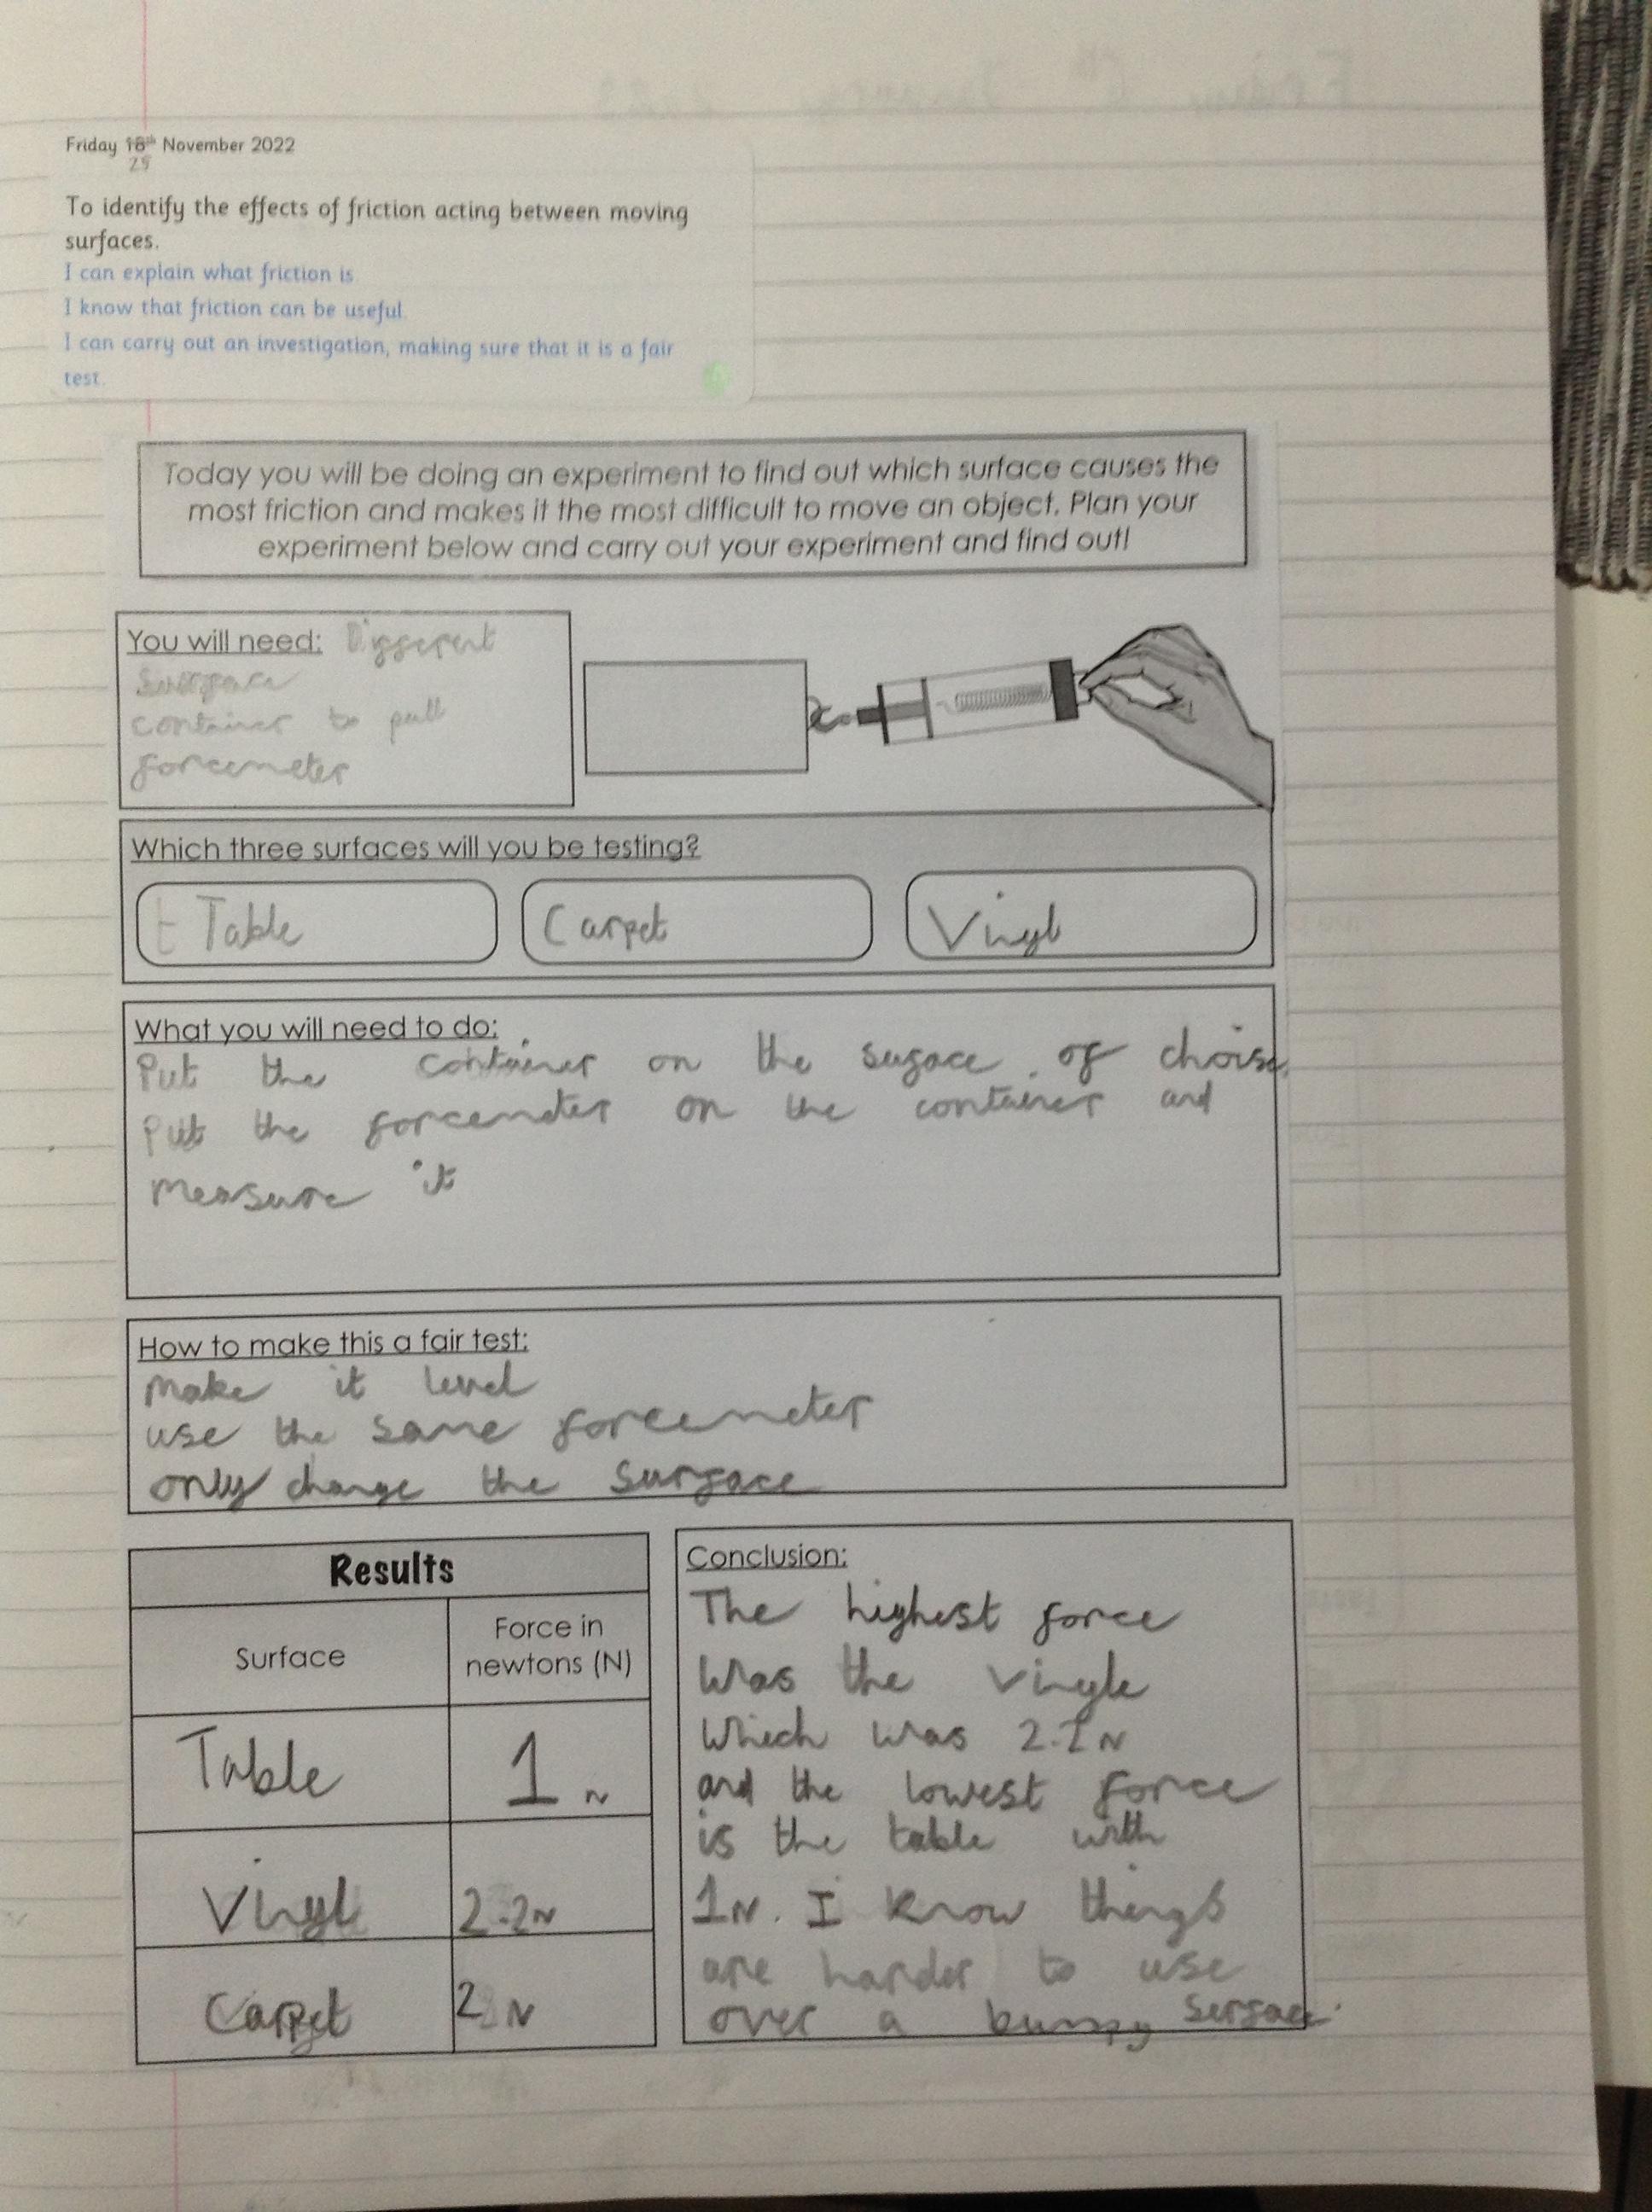 Friday 18th November 2022
25
To identify the effects of friction acting between moving
surfaces.
I can explain what friction is.
I know that friction can be useful.
I can carry out an investigation, making sure that it is a fair
test.
Today you will be doing an experiment to find out which surface causes the
most friction and makes it the most difficult to move an object. Plan your
experiment below and carry out your experiment and find out!
You will need: Different
surface
container to pull
forcemeter
Which three surfaces will you be testing?
t Table
Carpet
Vinyl
What you will need to do:
Put the container on the surface of choise.
Put the forcemeter on the container and
measure it
How to make this a fair test:
Make it level
use the same forcemeter
only change the surface
Results
Surface
Force in
newtons (N)
Table
1 N
Vinyl
2.2N
Carpet
2 N
Conclusion:
The highest force
Was the vinyle
Which was 2.2N
and the lowest force
is the table with
1N. I know things
are harder to use
over a bumpy sersace.